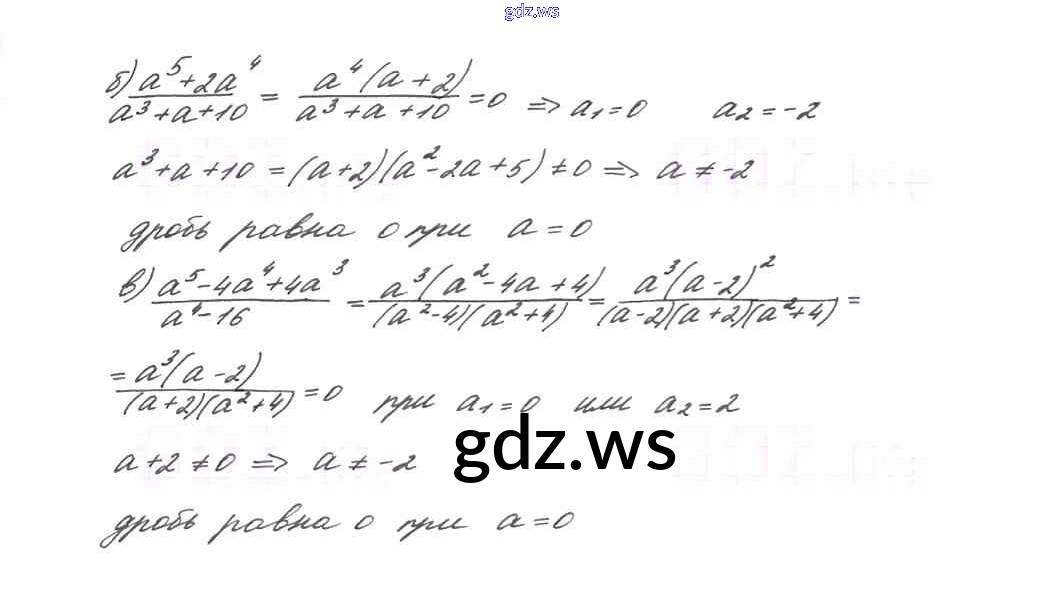 gdz.ws
б) (a⁵+2a⁴)/(a³+a+10) = (a⁴(a+2))/(a³+a+10) =0 => a₁=0 a₂=-2
a³+a+10=(a+2)(a²-2a+5)≠0 => a≠-2
дробь равна 0 при a=0
в) (a⁵-4a⁴+4a³)/(a⁴-16) = (a³(a²-4a+4))/((a²-4)(a²+4)) = (a³(a-2)²)/((a-2)(a+2)(a²+4)) =
= (a³(a-2))/((a+2)(a²+4)) =0 при a₁=0 или a₂=2
a+2≠0 => a≠-2
gdz.ws
дробь равна 0 при a=0